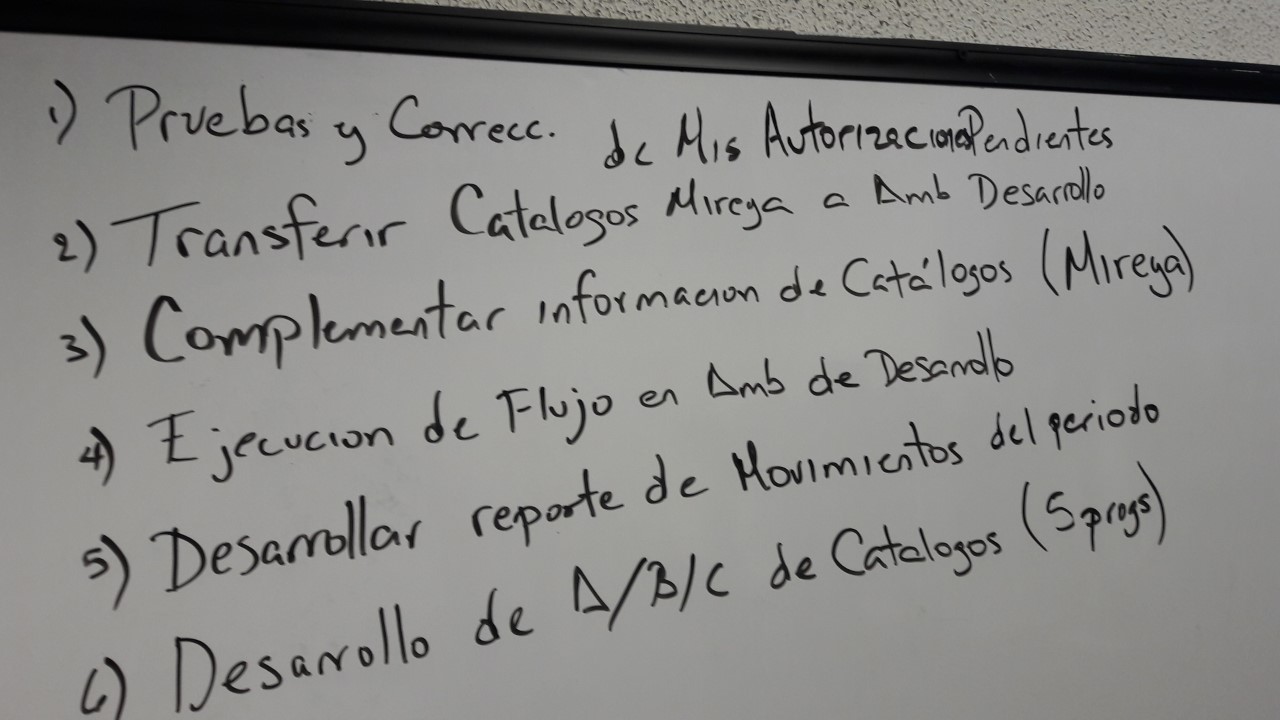 1) Pruebas y Correcc. de Mis Autorizaciones Pendientes
2) Transferir Catalogos Mireya a Amb Desarrollo
3) Complementar informacion de Catálogos (Mireya)
4) Ejecucion de Flujo en Amb de Desarrollo
5) Desarrollar reporte de Movimientos del periodo
6) Desarrollo de A/B/C de Catalogos (5 progs)